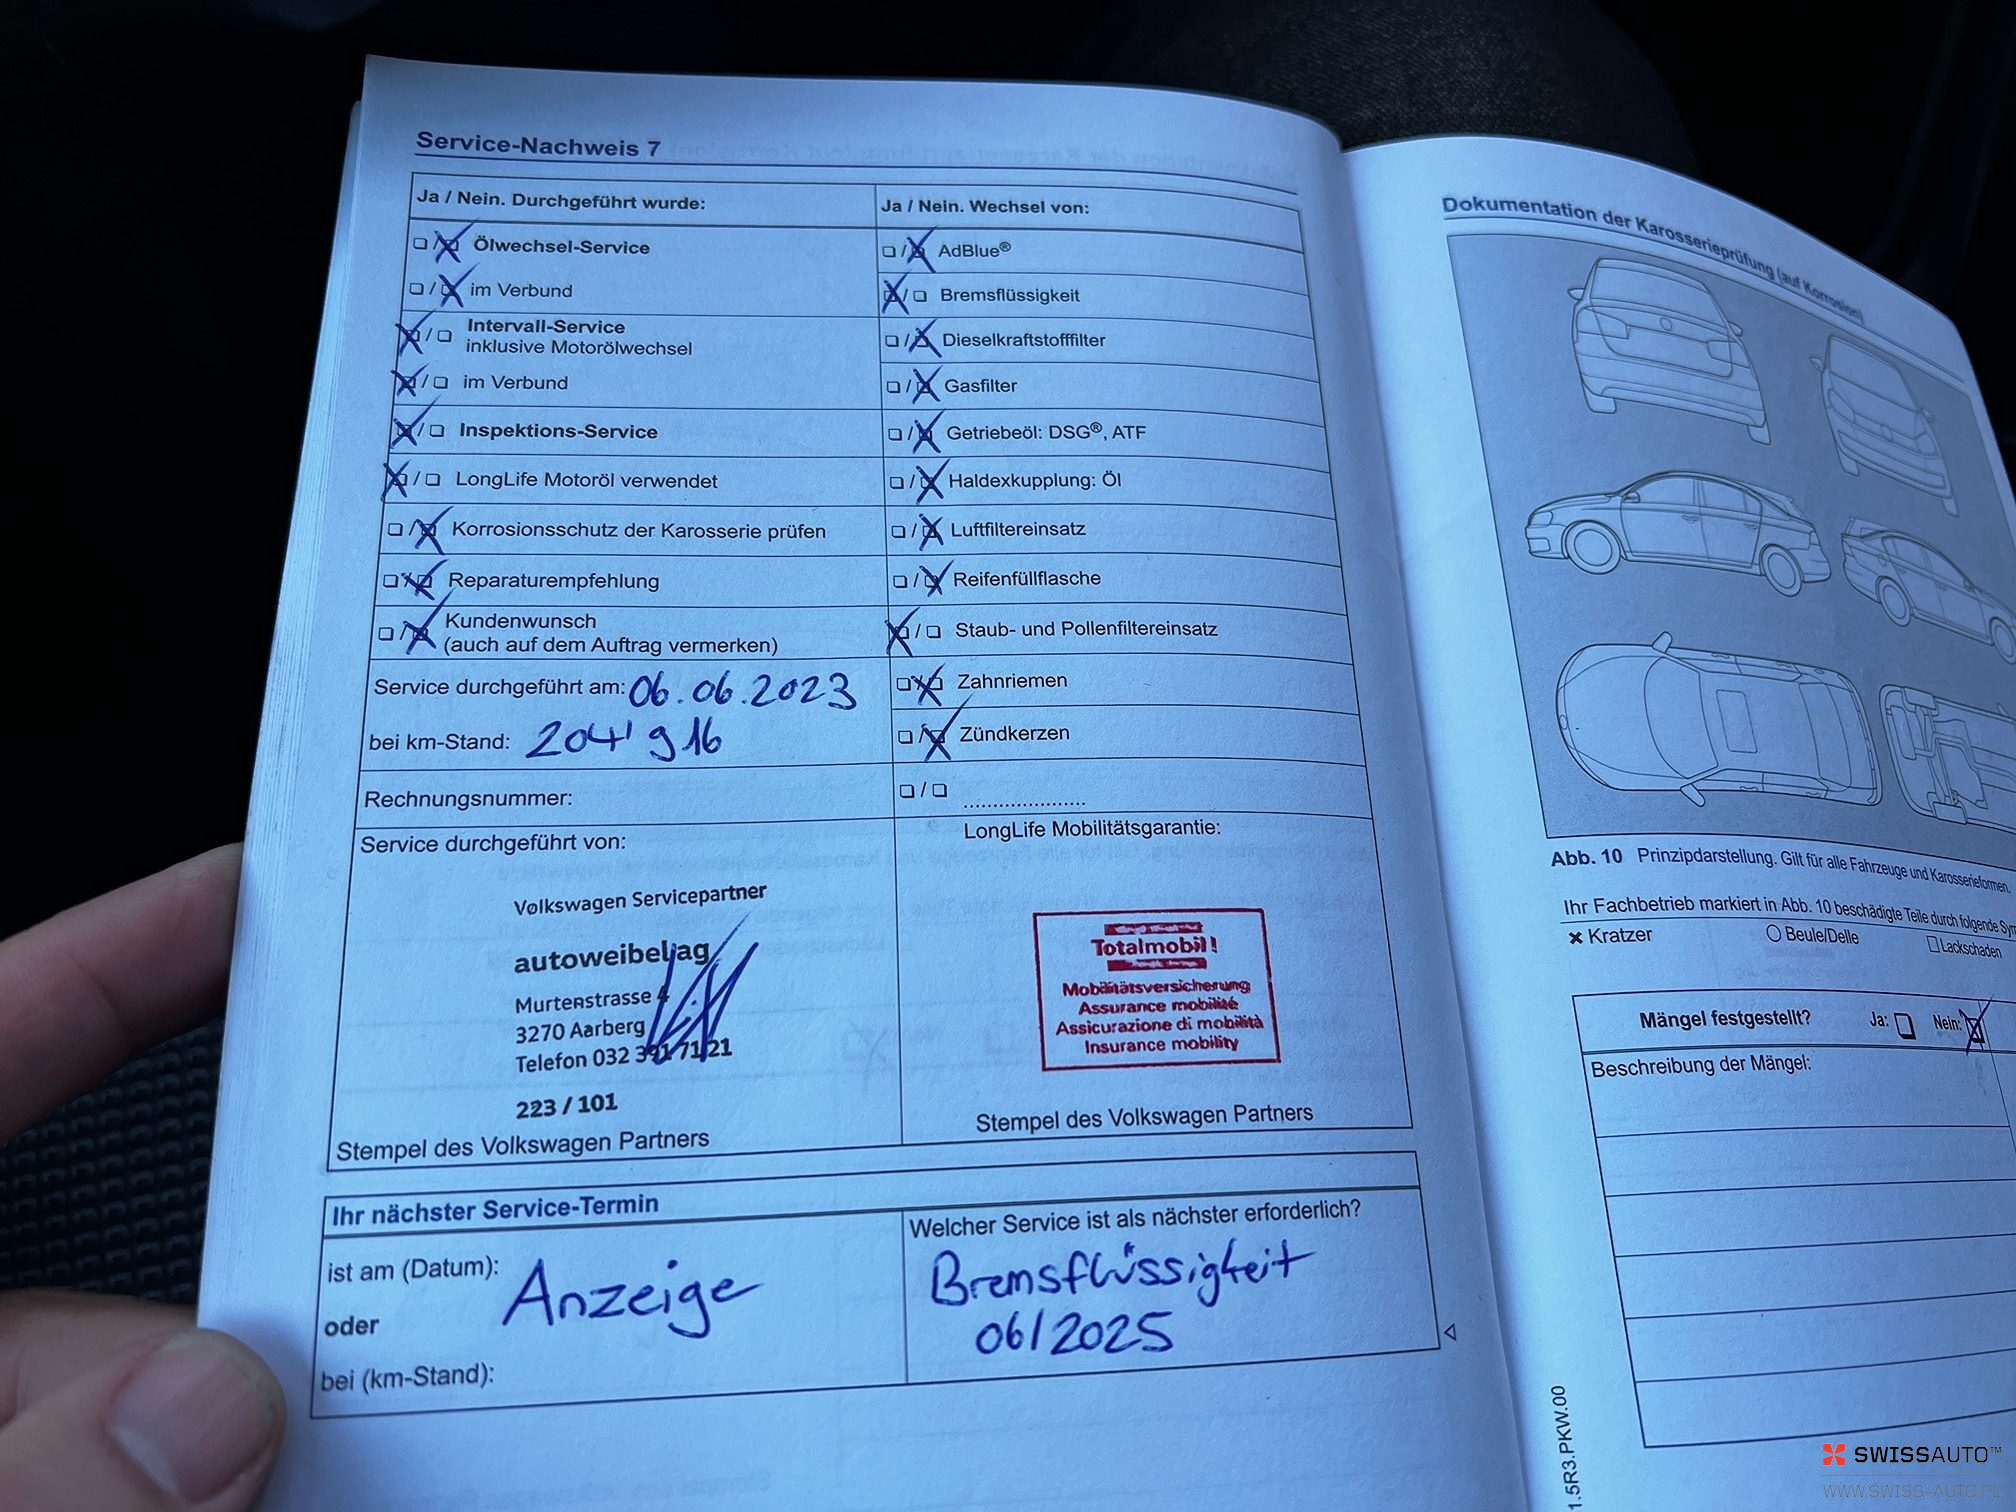 Service-Nachweis 7
Ja / Nein. Durchgeführt wurde:
Ölwechsel-Service
im Verbund
Intervall-Service
inklusive Motorölwechsel
im Verbund
Inspektions-Service
LongLife Motoröl verwendet
Korrosionsschutz der Karosserie prüfen
Reparaturempfehlung
Kundenwunsch
(auch auf dem Auftrag vermerken)
Service durchgeführt am: 06.06.2023
bei km-Stand: 204'916
Rechnungsnummer:
Ja / Nein. Wechsel von:
AdBlue®
Bremsflüssigkeit
Dieselkraftstofffilter
Gasfilter
Getriebeöl: DSG®, ATF
Haldexkupplung: Öl
Luftfiltereinsatz
Reifenfüllflasche
Staub- und Pollenfiltereinsatz
Zahnriemen
Zündkerzen
Service durchgeführt von:
Volkswagen Servicepartner
autoweibel ag
Murtenstrasse 4
3270 Aarberg
Telefon 032 391 71 21
223 / 101
Stempel des Volkswagen Partners
LongLife Mobilitätsgarantie:
Totalmobil!
Mobilitätsversicherung
Assurance mobilité
Assicurazione di mobilità
Insurance mobility
Stempel des Volkswagen Partners
Ihr nächster Service-Termin
ist am (Datum):
Anzeige
oder
bei (km-Stand):
Welcher Service ist als nächster erforderlich?
Bremsflüssigkeit
06/2025
Dokumentation der Karosserieprüfung (auf Korrosion)
Abb. 10 Prinzipdarstellung. Gilt für alle Fahrzeuge und Karosserieformen.
Ihr Fachbetrieb markiert in Abb. 10 beschädigte Teile durch folgende
Kratzer
Beule/Delle
Lackschaden
Mängel festgestellt? Ja: Nein:
Beschreibung der Mängel:
1.5R3.PKW.00
SWISSAUTO™